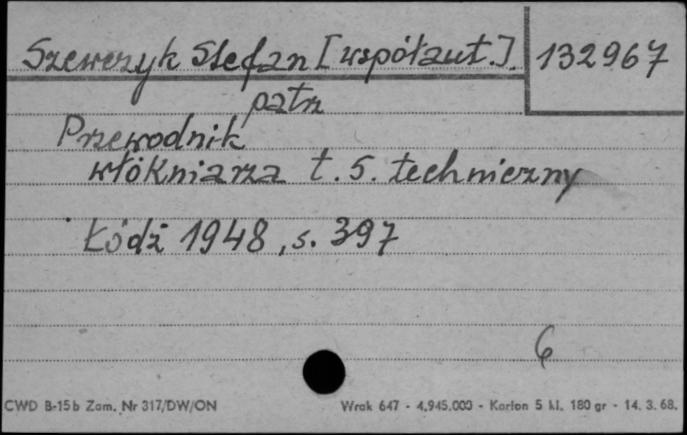 Szewczyk Stefan [współaut.]. 132967
patrz
Przewodnik
włókniarza t. 5. techniczny
Łódź 1948, s. 397
6
CWD B-15b Zam. Nr 317/DW/ON Wrak 647 - 4.945.000 - Karton 5 kl. 180 gr - 14. 3. 68.